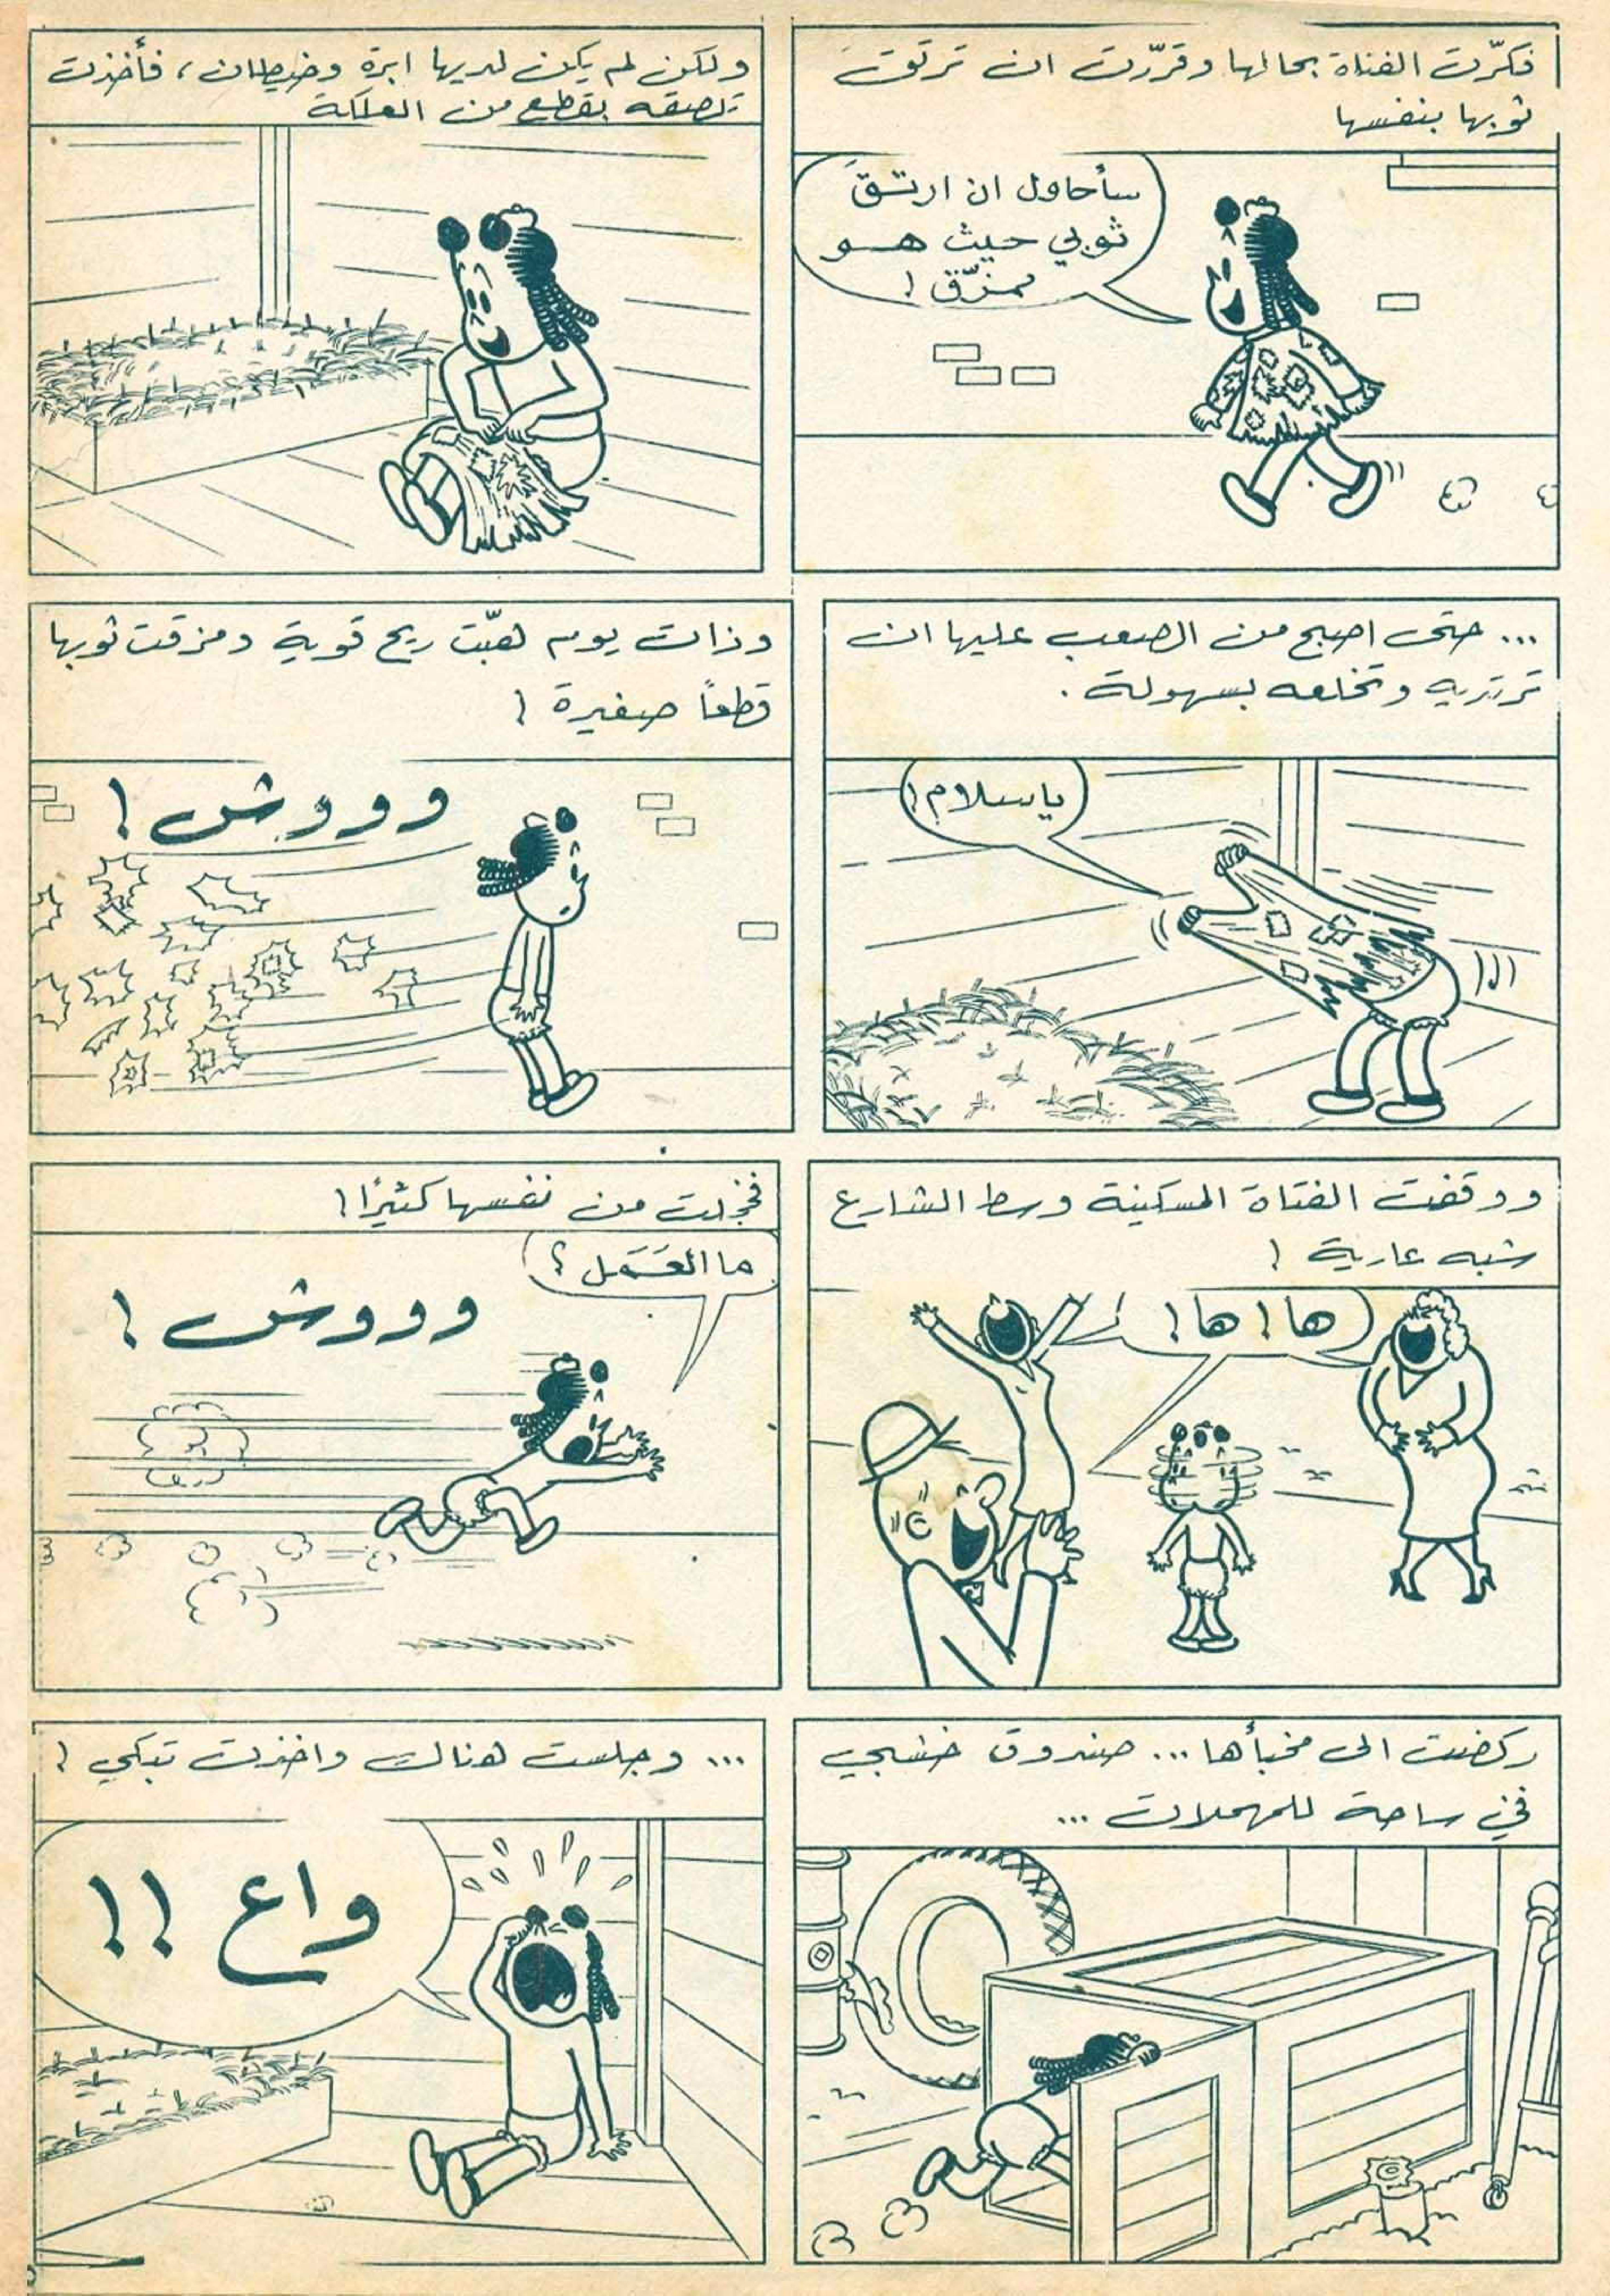 فكّرت الفتاة بحالها وقرّرت ان ترتق
ثوبها بنفسها
سأحاول ان ارتق
ثوبي حيث هو
ممزّق !
ولكن لم يكن لديها ابرة وخيطان ، فأخذت
تلصقه بقطع من العلكة
... حتى اصبح من الصعب عليها ان
ترتديه وتخلعه بسهولة .
يا سلام !
وذات يوم هبّت ريح قوية ومزقت ثوبها
قطعاً صغيرة !
وووش !
ووقفت الفتاة المسكينة وسط الشارع
شبه عارية !
ها ! ها !
فخجلت من نفسها كثيرًا !
ما العَمَل ؟
وووش !
ركضت الى مخبأها ... صندوق خشبي
في ساحة للمهملات ...
... وجلست هناك واخذت تبكي !
واع !!